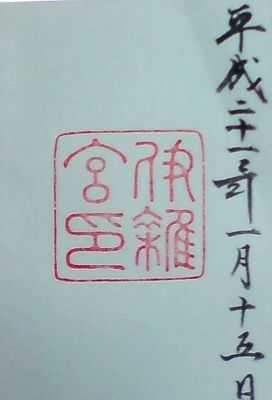 平成二十一年一月十五日
伊雜
宮印